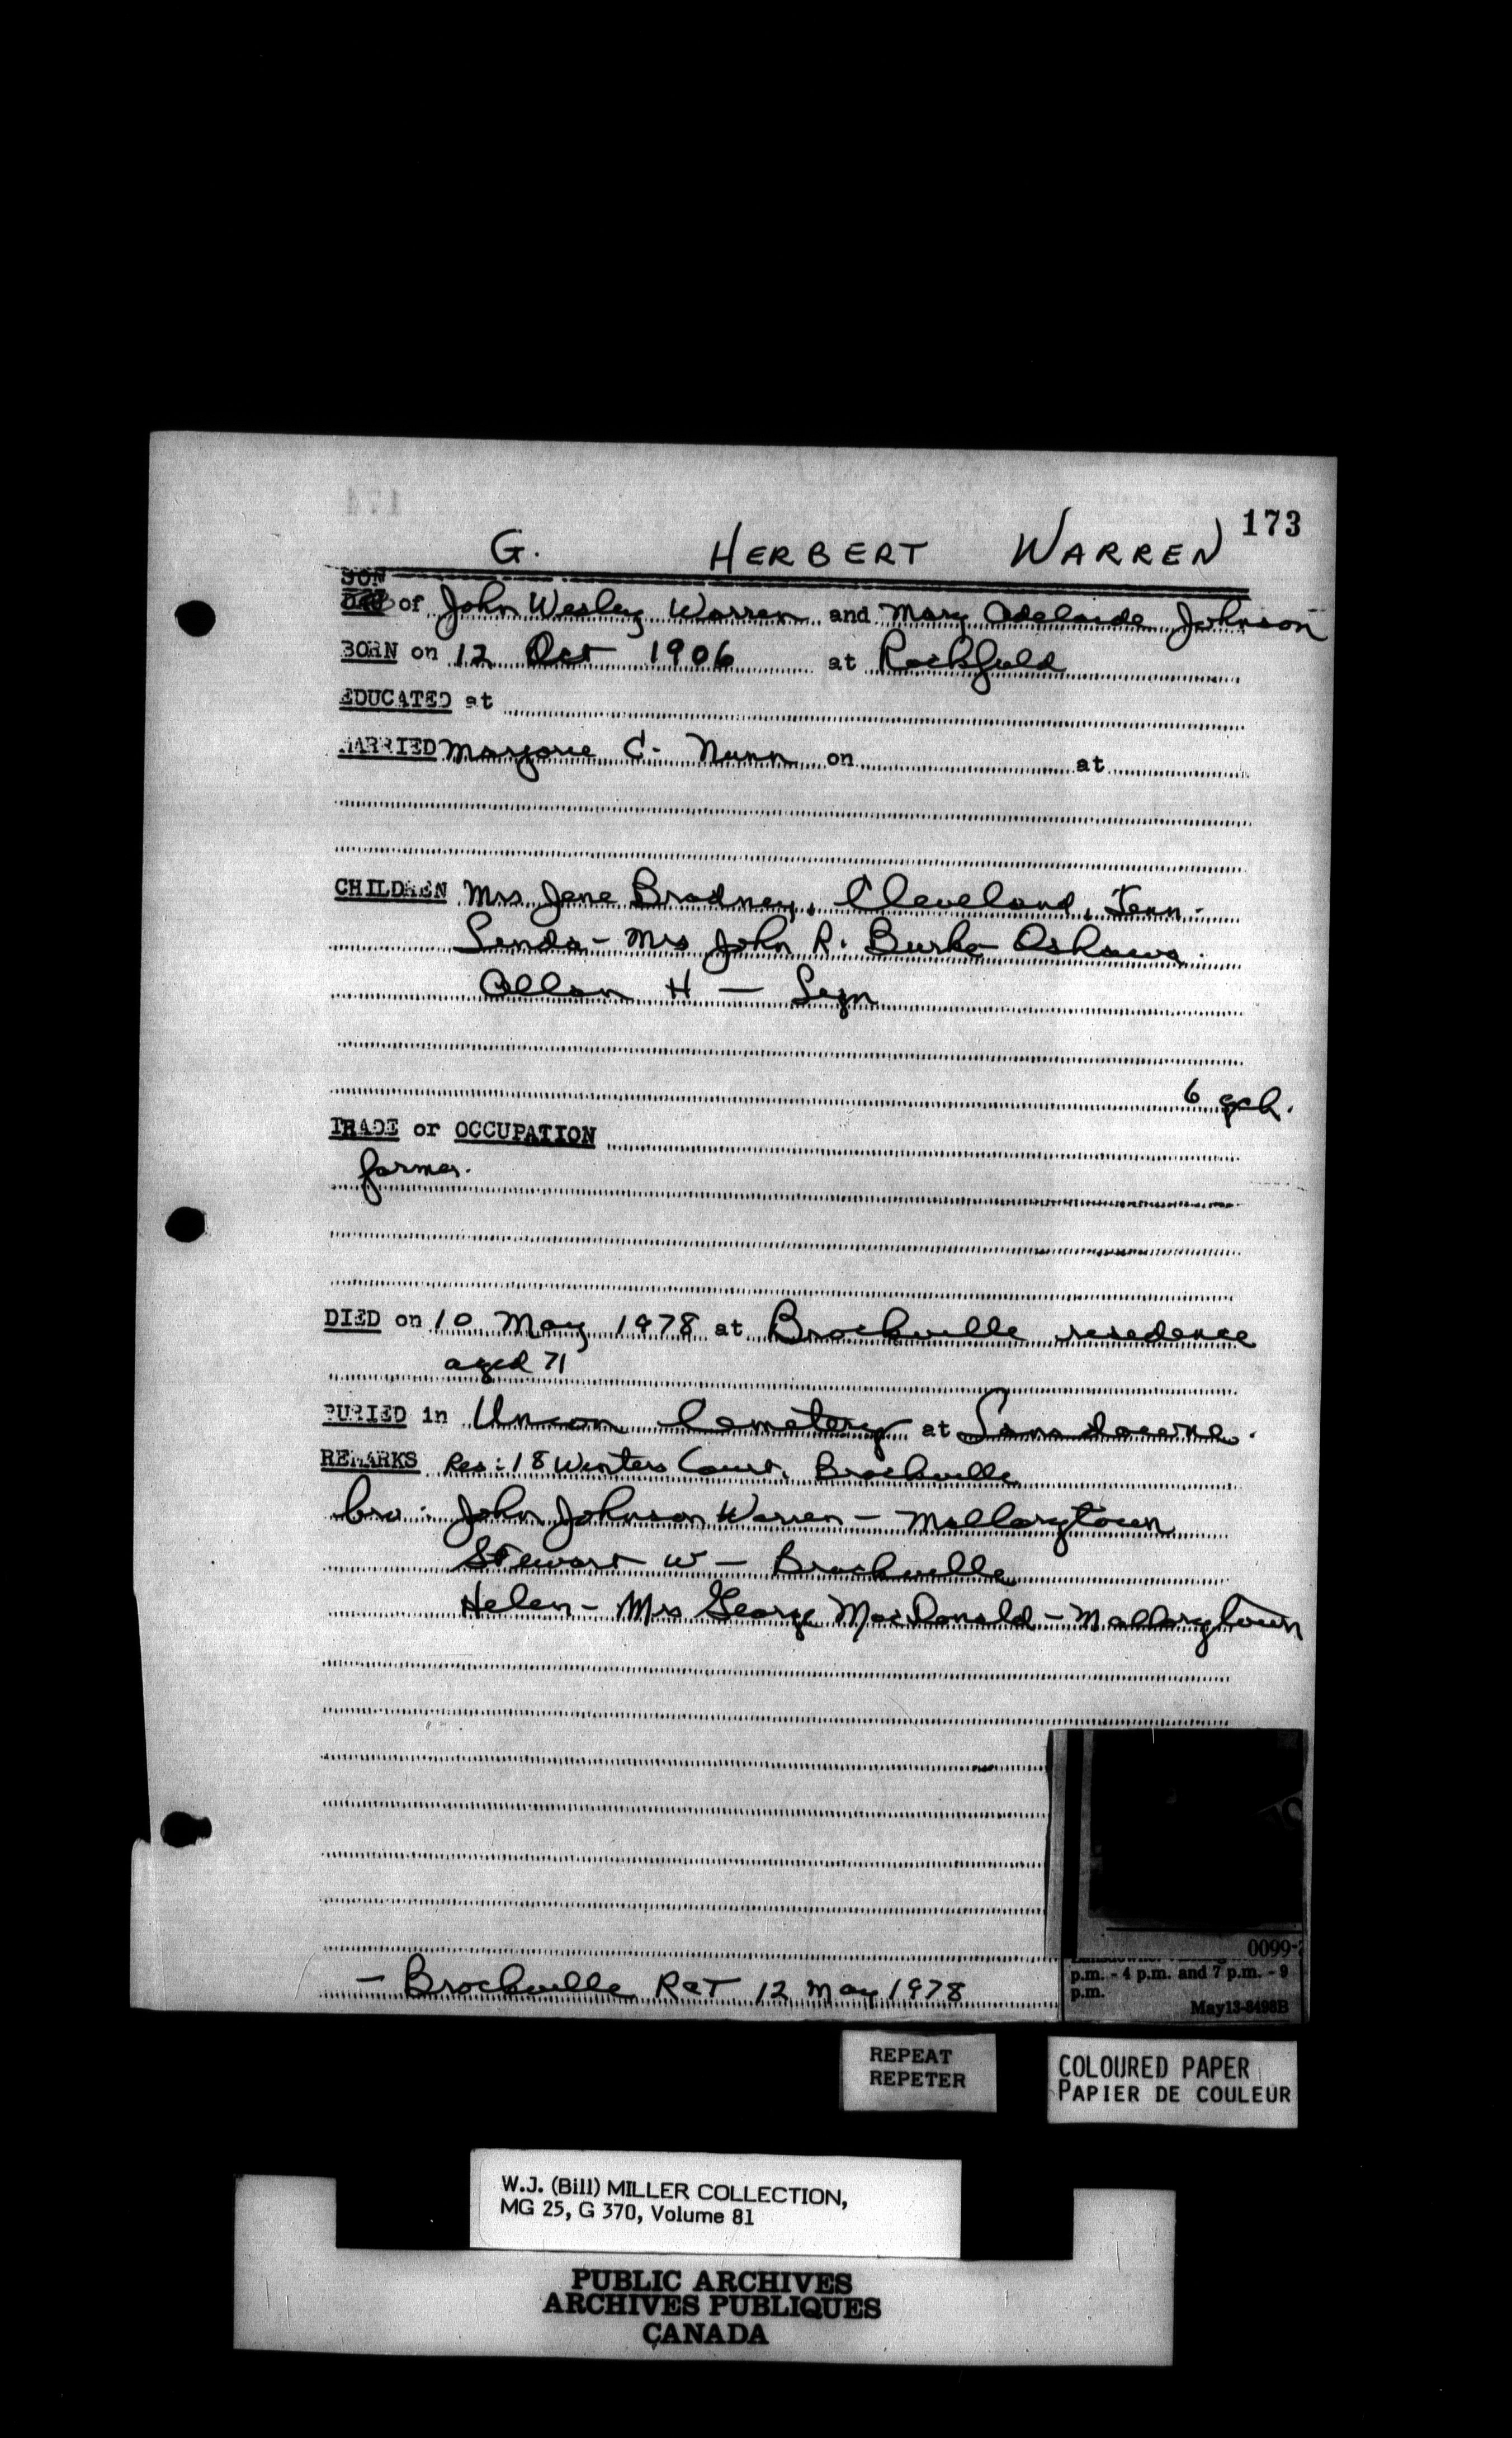 173
G. HERBERT WARREN
SON
of John Wesley Warren and Mary Adelaide Johnson
BORN on 12 Oct 1906 at Rockfield
EDUCATED at
MARRIED Marjorie C. Nunn on at
CHILDREN Mrs Jane Bradney, Cleveland, Tenn.
Linda - Mrs John R. Burke Oshawa
Allan H - Lyn
6 gch.
TRADE or OCCUPATION
farmer.
DIED on 10 May 1978 at Brockville residence
aged 71
BURIED in Union Cemetery at Lansdowne.
REMARKS Res: 18 Winters Court, Brockville
bro: John Johnson Warren - Mallorytown
Stewart W - Brockville
Helen - Mrs George MacDonald - Mallorytown
0099-
p.m. - 4 p.m. and 7 p.m. - 9
p.m.
May13-8498B
- Brockville R&T 12 May 1978
REPEAT
REPETER
COLOURED PAPER
PAPIER DE COULEUR
W.J. (Bill) MILLER COLLECTION,
MG 25, G 370, Volume 81
PUBLIC ARCHIVES
ARCHIVES PUBLIQUES
CANADA